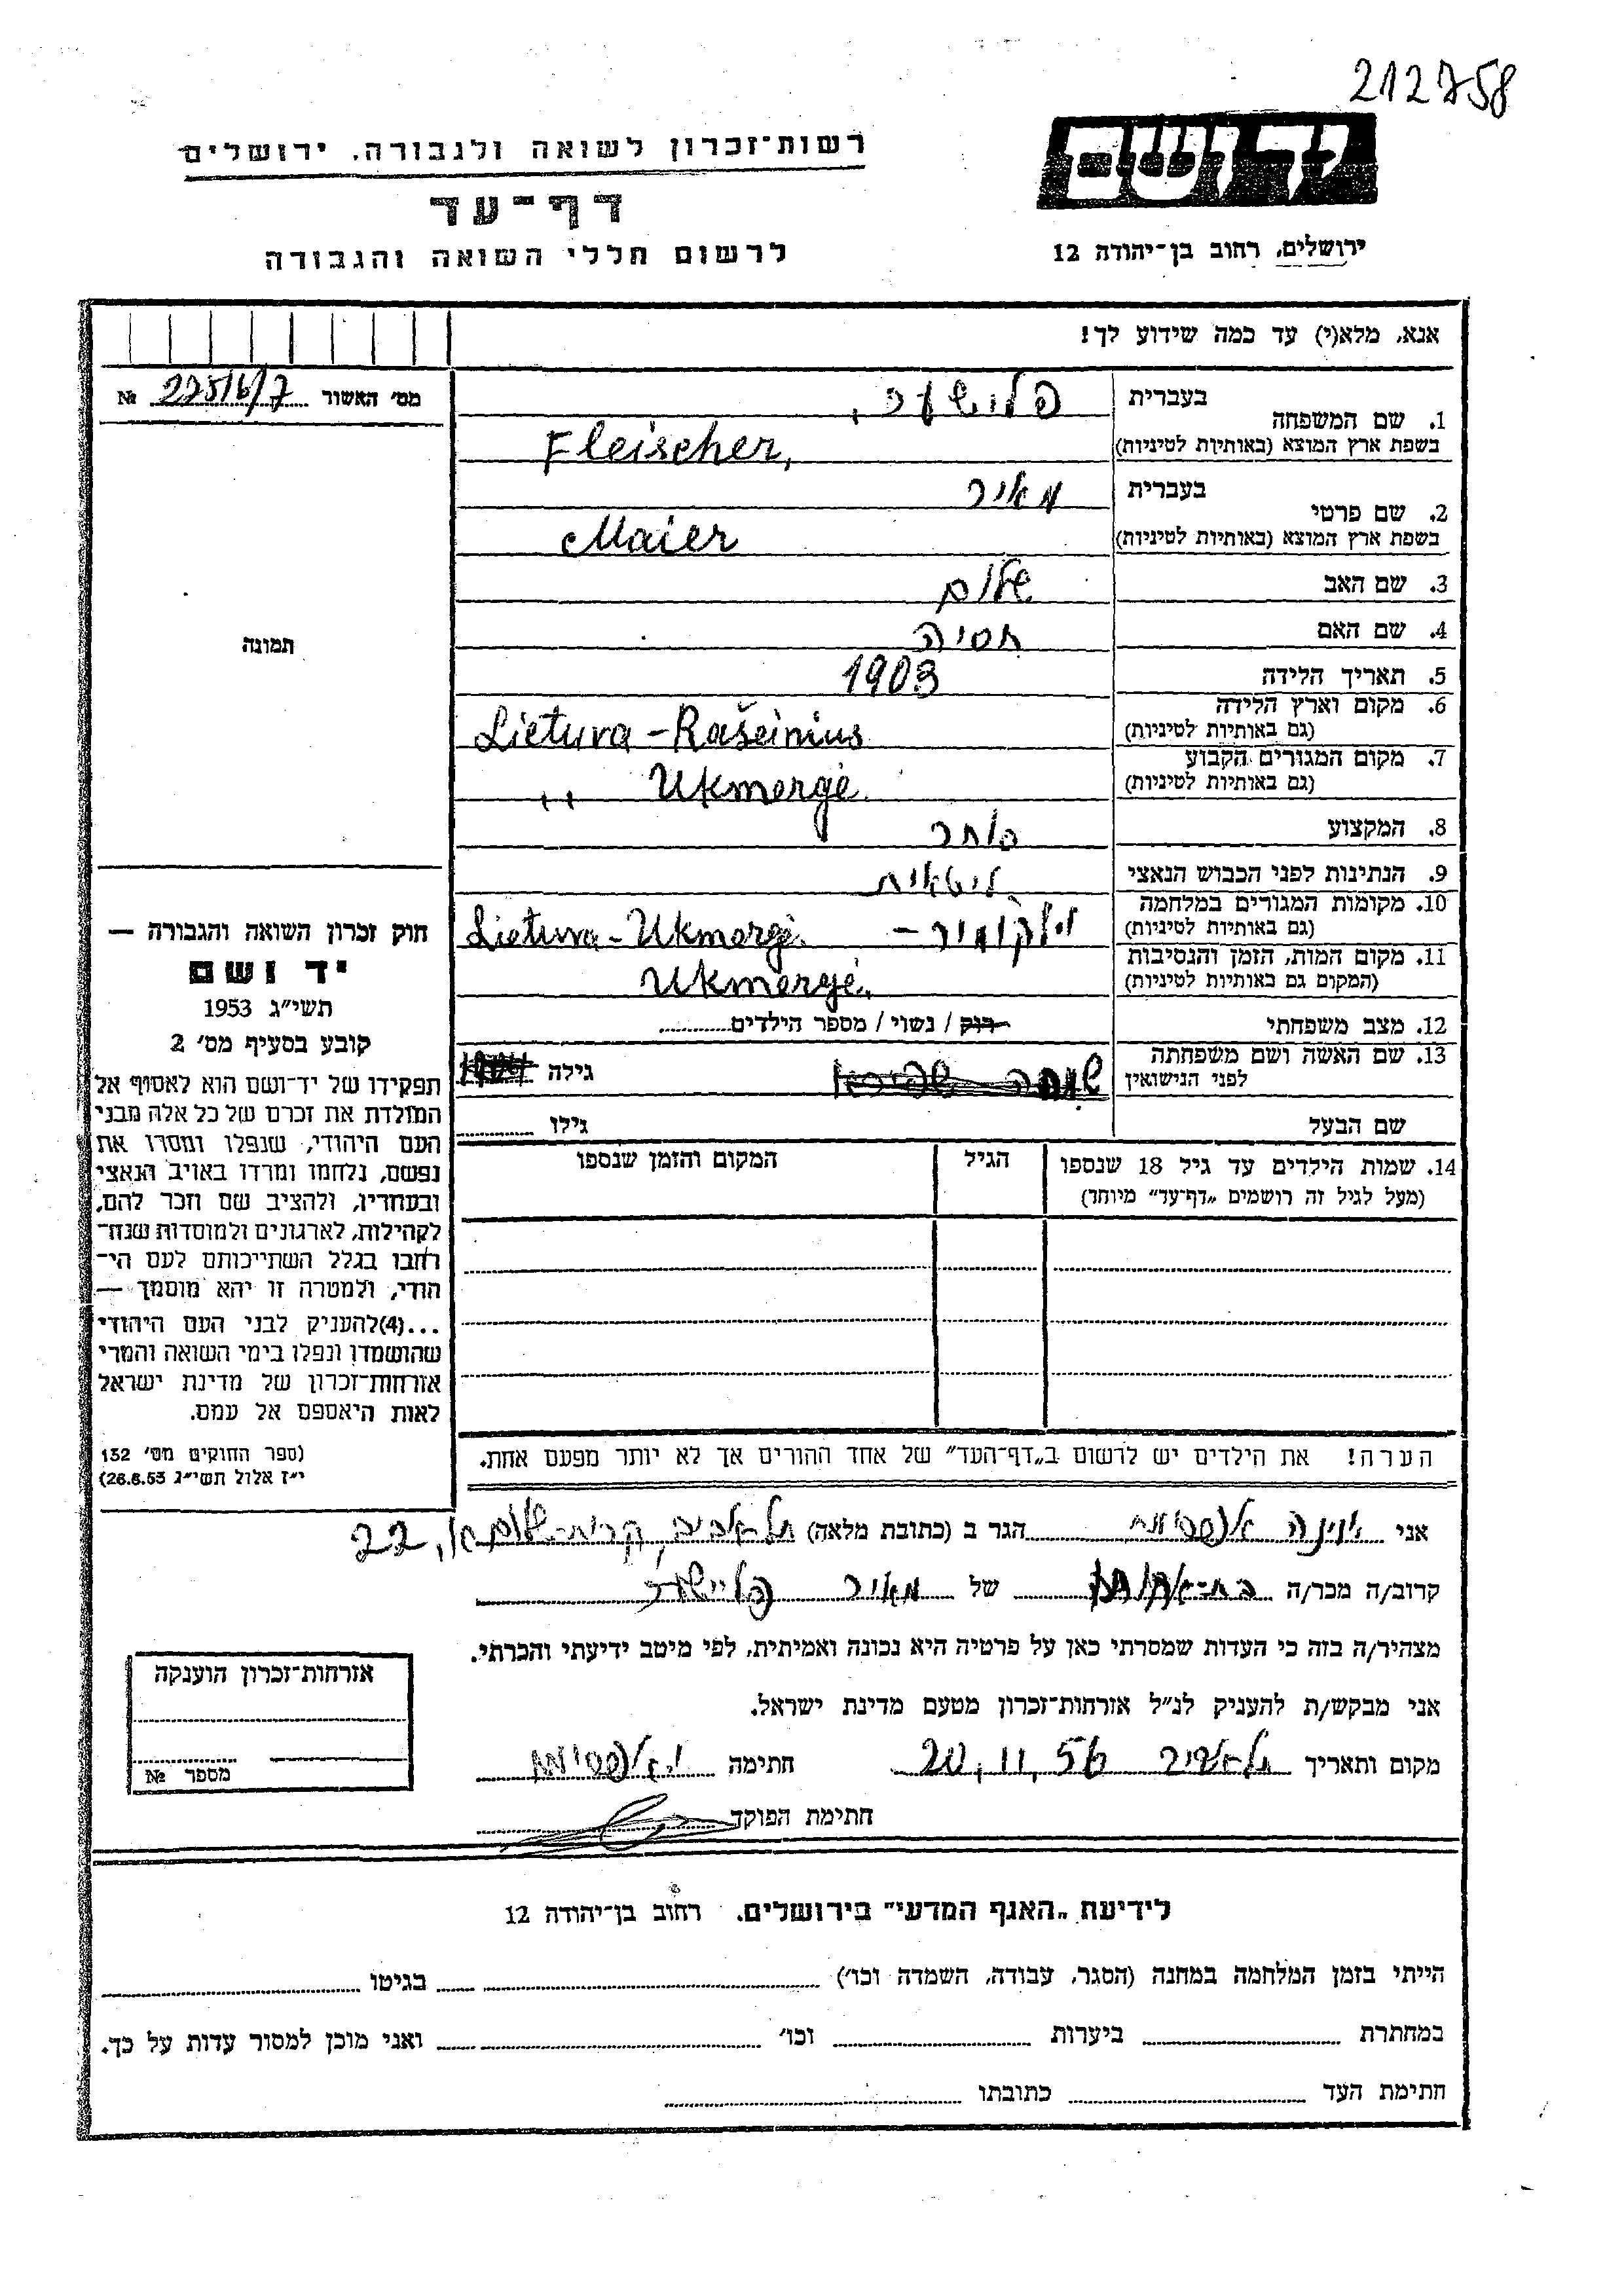 212758
רשות־זכרון לשואה ולגבורה, ירושלים
יד ושם
דף־עד
לרשום חללי השואה והגבורה
ירושלים, רחוב בן־יהודה 12
אנא, מלא(י) עד כמה שידוע לך!
מס׳ האשור № 225/6/7
תמונה
בעברית
1. שם המשפחה
פליישער,
בשפת ארץ המוצא (באותיות לטיניות) Fleischer,
בעברית מאיר
2. שם פרטי
בשפת ארץ המוצא (באותיות לטיניות) Maier
3. שם האב שלום
4. שם האם חסיה
5. תאריך הלידה 1903
6. מקום וארץ הלידה
(גם באותיות לטיניות) Lietuva - Rašeinius
7. מקום המגורים הקבוע
(גם באותיות לטיניות) ,, Ukmergė
8. המקצוע סוחר
9. הנתינות לפני הכבוש הנאצי ליטאית
10. מקומות המגורים במלחמה
(גם באותיות לטיניות) וילקומיר – Lietuva - Ukmergė
11. מקום המות, הזמן והנסיבות
(המקום גם באותיות לטיניות) Ukmergė.
12. מצב משפחתי רווק / נשוי / מספר הילדים
13. שם האשה ושם משפחתה
לפני הנישואין
גילה
שם הבעל גילו
14. שמות הילדים עד גיל 18 שנספו הגיל המקום והזמן שנספו
(מעל לגיל זה רושמים „דף־עד״ מיוחד)
הערה! את הילדים יש לרשום ב„דף־העד״ של אחד ההורים אך לא יותר מפעם אחת.
חוק זכרון השואה והגבורה —
יד ושם
תשי״ג 1953
קובע בסעיף מס׳ 2
תפקידו של יד־ושם הוא לאסוף אל
המולדת את זכרם של כל אלה מבני
העם היהודי, שנפלו ומסרו את
נפשם, נלחמו ומרדו באויב הנאצי
ובעוזריו, ולהציב שם וזכר להם,
לקהילות, לארגונים ולמוסדות שנח־
רחבו בגלל השתייכותם לעם הי־
הודי, ולמטרה זו יהא מוסמך —
...(4)להעניק לבני העם היהודי
שהושמדו ונפלו בימי השואה והמרי
אזרחות־זכרון של מדינת ישראל
לאות היאספם אל עמם.
(ספר החוקים מס׳ 132
י״ז אלול תשי״ג 26.8.53)
אני הגר ב (כתובת מלאה) תל אביב, קרית־שלום א, 22
קרוב/ה מכר/ה של מאיר פליישער
מצהיר/ה בזה כי העדות שמסרתי כאן על פרטיה היא נכונה ואמיתית, לפי מיטב ידיעתי והכרתי.
אני מבקש/ת להעניק לנ״ל אזרחות־זכרון מטעם מדינת ישראל.
מקום ותאריך תל אביב 20,11,56 חתימה
חתימת הפוקד
אזרחות־זכרון הוענקה
מספר №
לידיעת „האגף המדעי״ בירושלים. רחוב בן־יהודה 12
הייתי בזמן המלחמה במחנה (הסגר, עבודה, השמדה וכו׳) בגיטו
במחתרת ביערות וכו׳ ואני מוכן למסור עדות על כך.
חתימת העד כתובתו